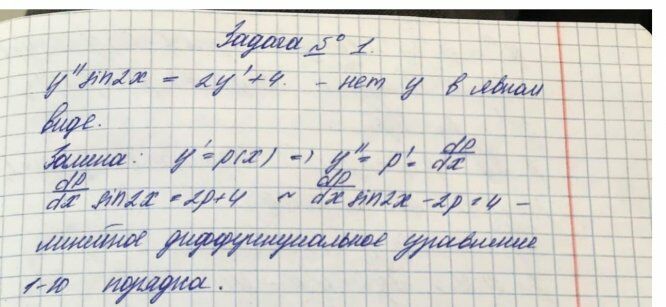 Задача № 1.
y'' sin2x = 2y' + 4. - нет y в явном
виде.
Замена: y' = p(x) => y'' = p' = dp/dx
dp/dx sin2x = 2p+4 ~ dp/dx sin2x - 2p = 4 -
линейное дифференциальное уравнение
1-го порядка.